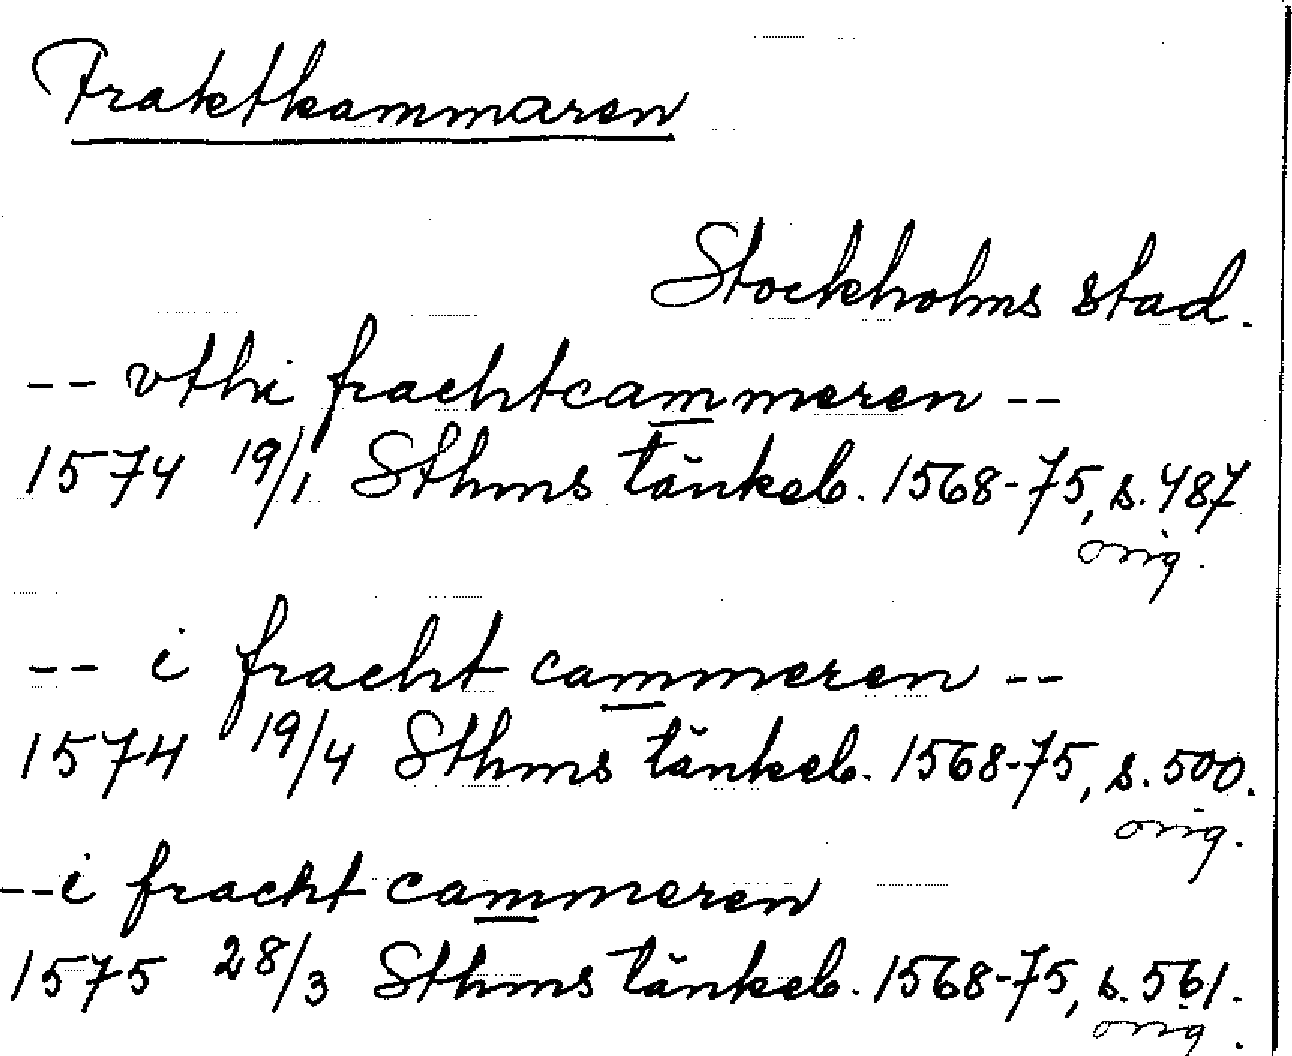 Fraktkammaren
Stockholms stad.
-- vthi frachtcammeren --
1574 19/1 Sthms tänkeb. 1568-75, s. 487
orig.
-- i fracht cammeren --
1574 19/4 Sthms tänkeb. 1568-75, s. 500.
orig.
-- i fracht cammeren
1575 28/3 Sthms tänkeb. 1568-75, s. 561.
orig.